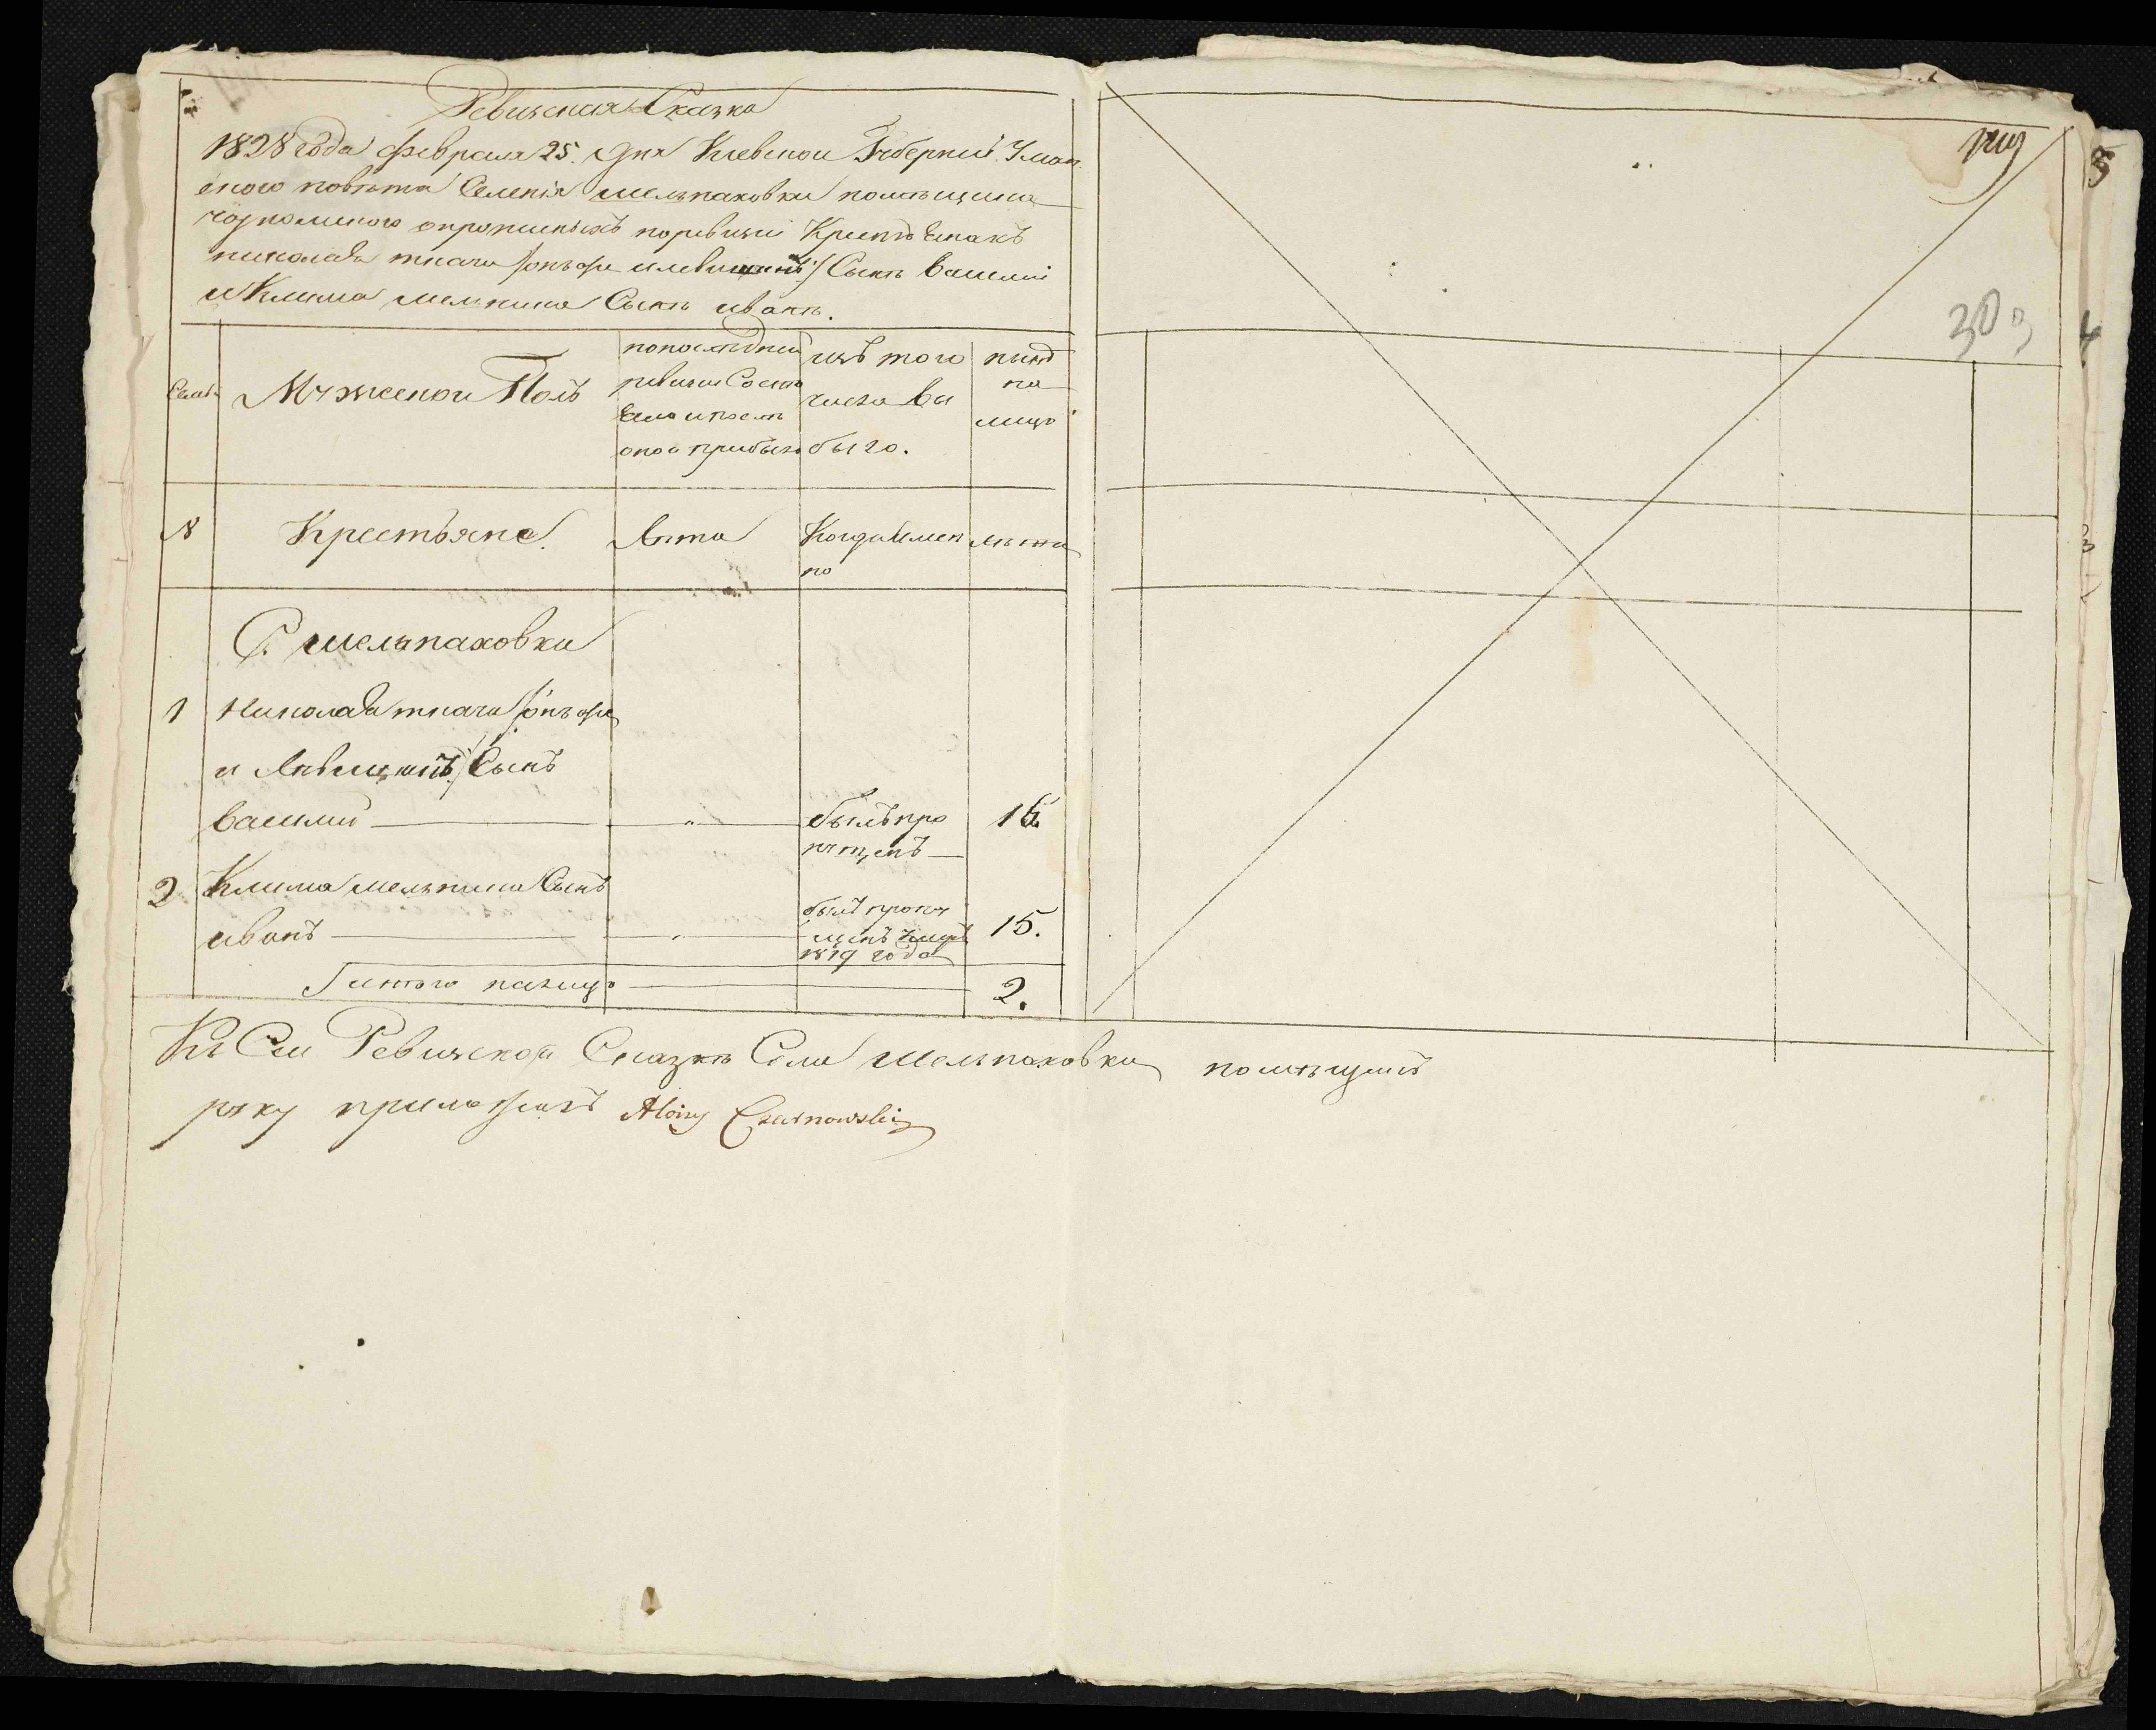 Ревизская Сказка
1828 года февраля 25. дня Киевской Губернии Уман
ского повѣта Селенія шельпаховки помѣщика
о пропискныхъ по ревизіи Крестьянахъ
николая ткача /онъ же и левицкій/ Сынъ василий
и Клима мельника Сынъ иванъ.
Семьи
Мужеской Полъ
по последней
ревизии Состо
яло и после
оной прибыло
изъ того
числа вы
было.
нынѣ
на
лицо
№
Крестьяне
лѣта
Когда имен
но
лѣта
С. шельпаховки
1 Николая ткача /онъ же
и Левицкій/ Сынъ
василий — " — былъ про 15
пущенъ —
2 Клима мельника Сынъ
иванъ — " — былъ пропу
щенъ 15.
1819 года
Итого налицо — 2.
Къ Сей Ревизской Сказкѣ Села шельпаховки помѣщикъ
руку приложилъ Aloizy Czarnowski
309
5
4
3